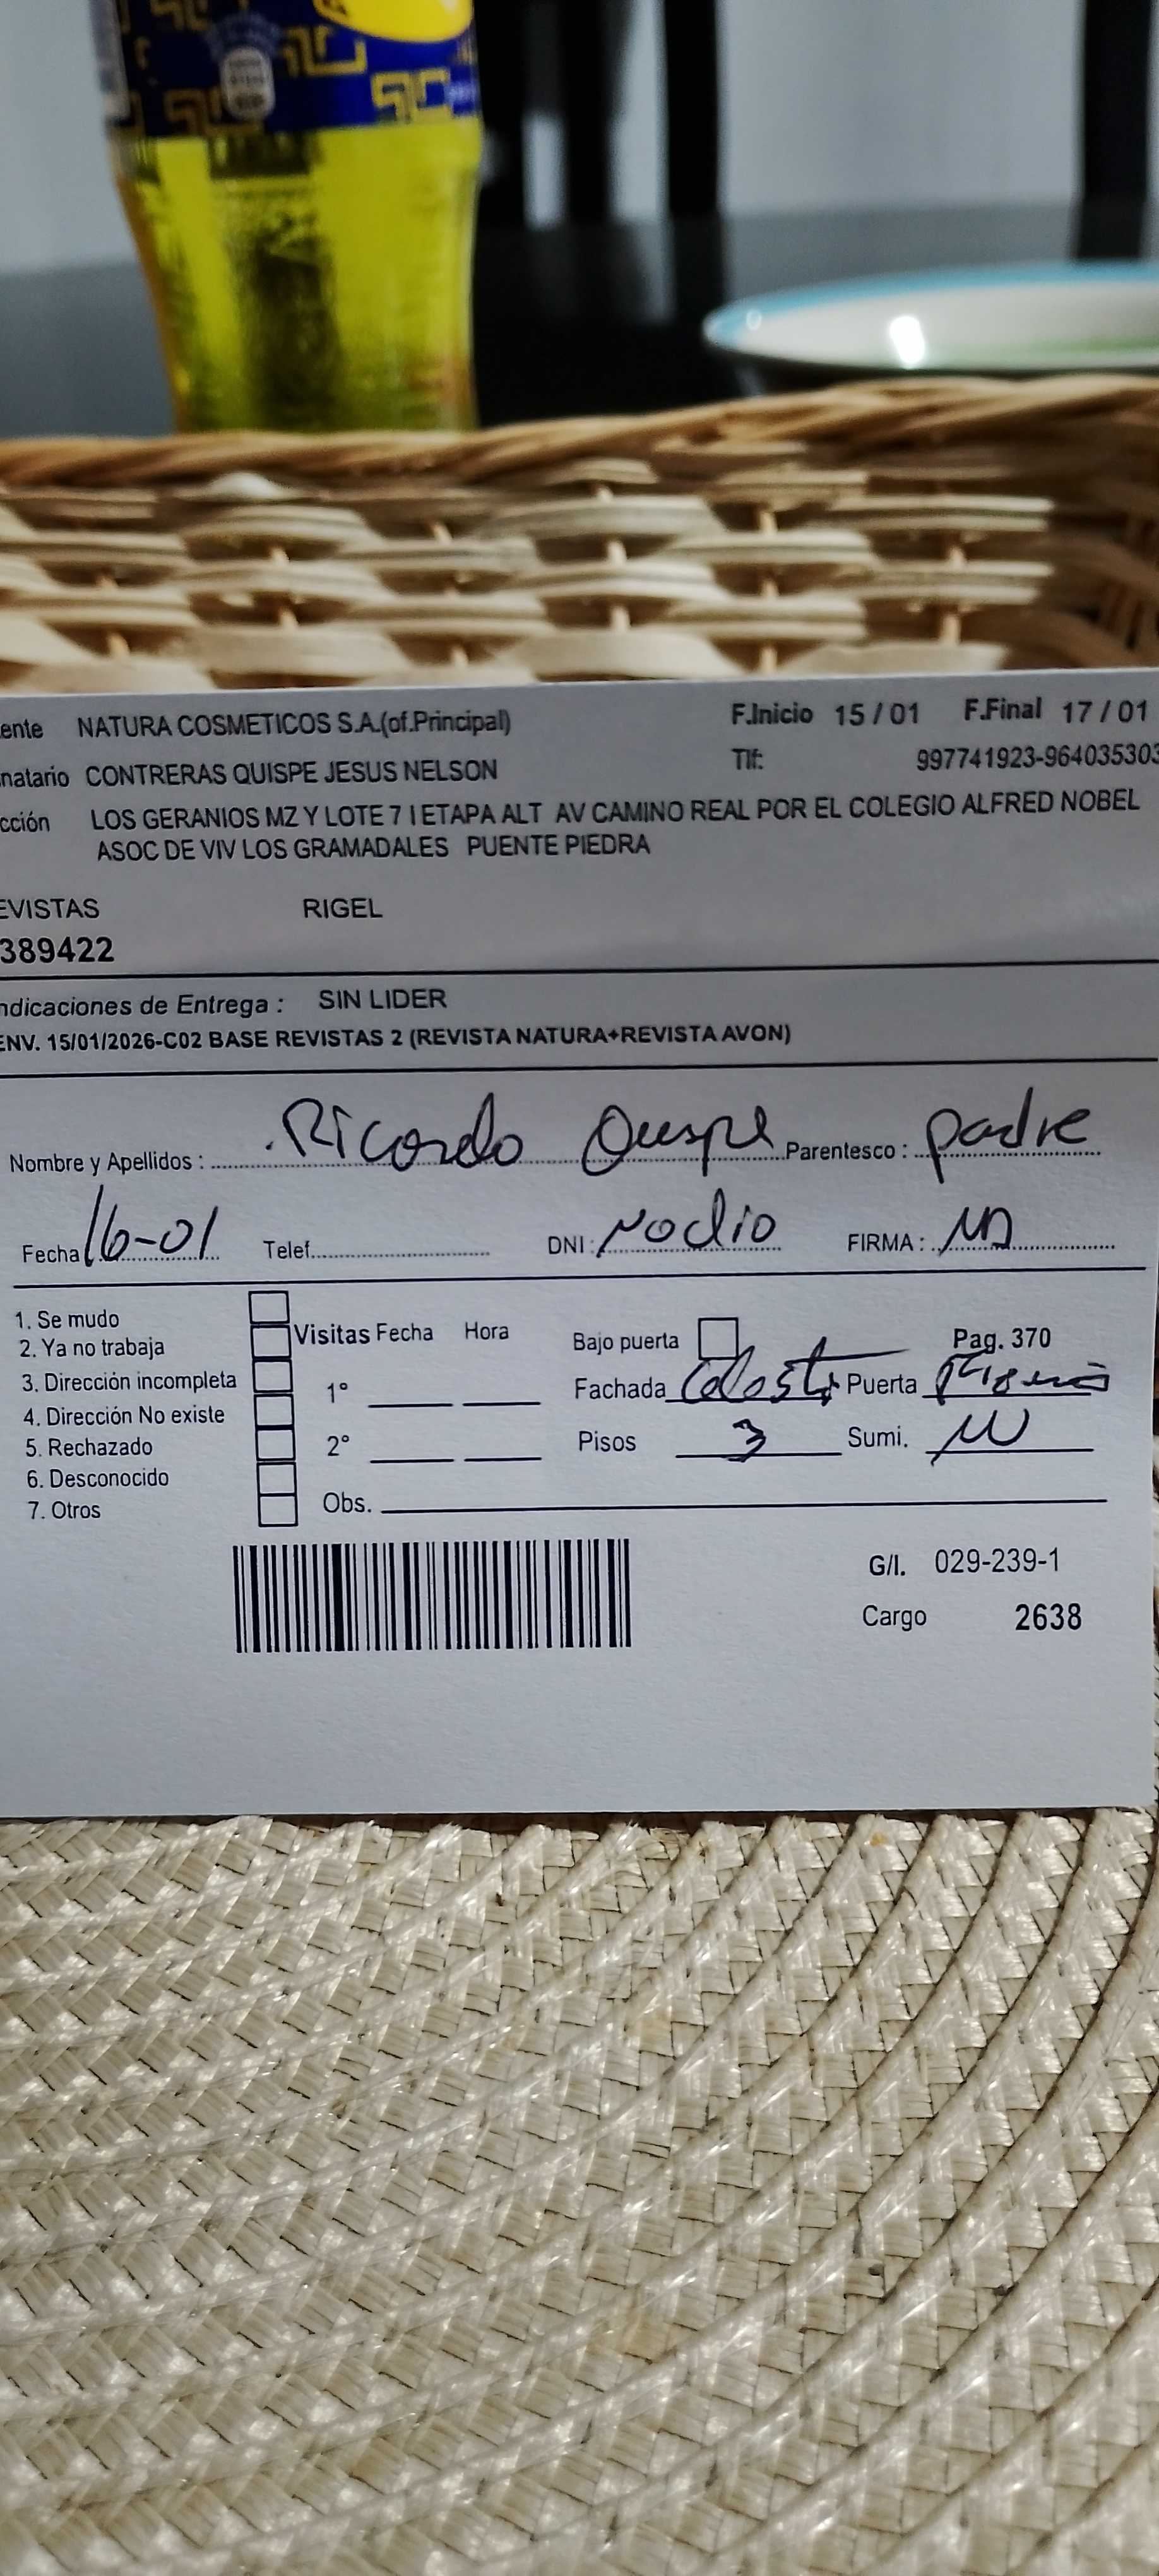 ente NATURA COSMETICOS S.A.(of.Principal) F.Inicio 15 / 01 F.Final 17 / 01
natario CONTRERAS QUISPE JESUS NELSON Tlf: 997741923-964035303
cción LOS GERANIOS MZ Y LOTE 7 I ETAPA ALT AV CAMINO REAL POR EL COLEGIO ALFRED NOBEL
ASOC DE VIV LOS GRAMADALES PUENTE PIEDRA
EVISTAS RIGEL
389422
ndicaciones de Entrega : SIN LIDER
ENV. 15/01/2026-C02 BASE REVISTAS 2 (REVISTA NATURA+REVISTA AVON)
Nombre y Apellidos : Ricardo Quispe Parentesco : padre
Fecha 16-01 Telef. DNI: No dio FIRMA :
1. Se mudo
2. Ya no trabaja Visitas Fecha Hora Bajo puerta Pag. 370
3. Dirección incompleta 1° Fachada Celeste Puerta
4. Dirección No existe
5. Rechazado 2° Pisos 3 Sumi.
6. Desconocido
7. Otros Obs.
G/I. 029-239-1
Cargo 2638